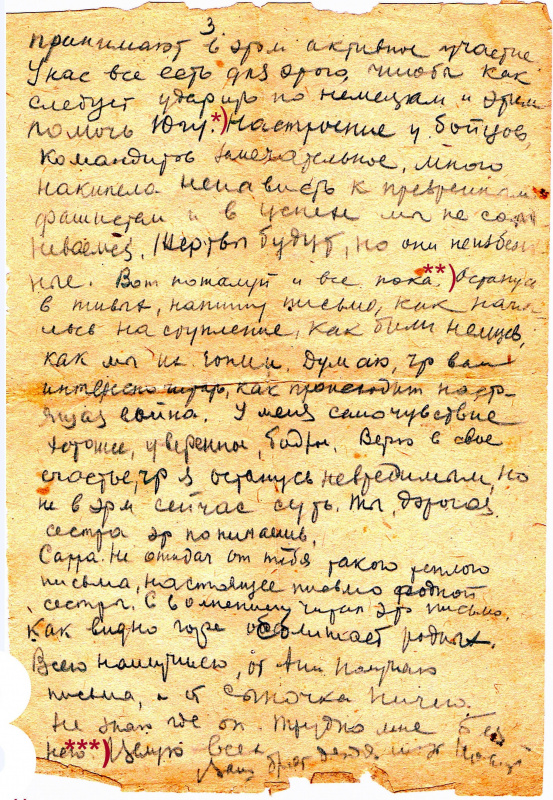 3
принимают в этом активное участие
У нас все есть для этого, чтобы как
следует ударить по немецкам и этим
помочь Югу *) Настроение у бойцов,
командиров замечательное, много
накипела ненависть к презренным
фашистам и в успехе мы не сом
неваемся. Жертвы будут, но они неизбеж
ные. Вот пожалуй и все пока. **) Останусь
в живых, напишу письмо, как нача
лось наступление, как били немцев,
как мы их гоним. Думаю, что вам
интересно читать, как происходит насто-
ящая война. У меня самочувствие
хорошее, уверенное, бодрое. Верю в свое
счастье, что я останусь невредимым, но
не в этом сейчас суть. Ты, дорогая
сестра это понимаешь.
Сарра. Не ожидал от тебя такого теплого
письма, настоящее письмо родной
сестры. С волнением читал это письмо.
Как видно горе сближает родных.
Всего наилучшего, от Ани получаю
письма, а от сыночка ничего.
Не знаю где он. Трудно мне без
него ***) Целую всех
Ваш брат дядя